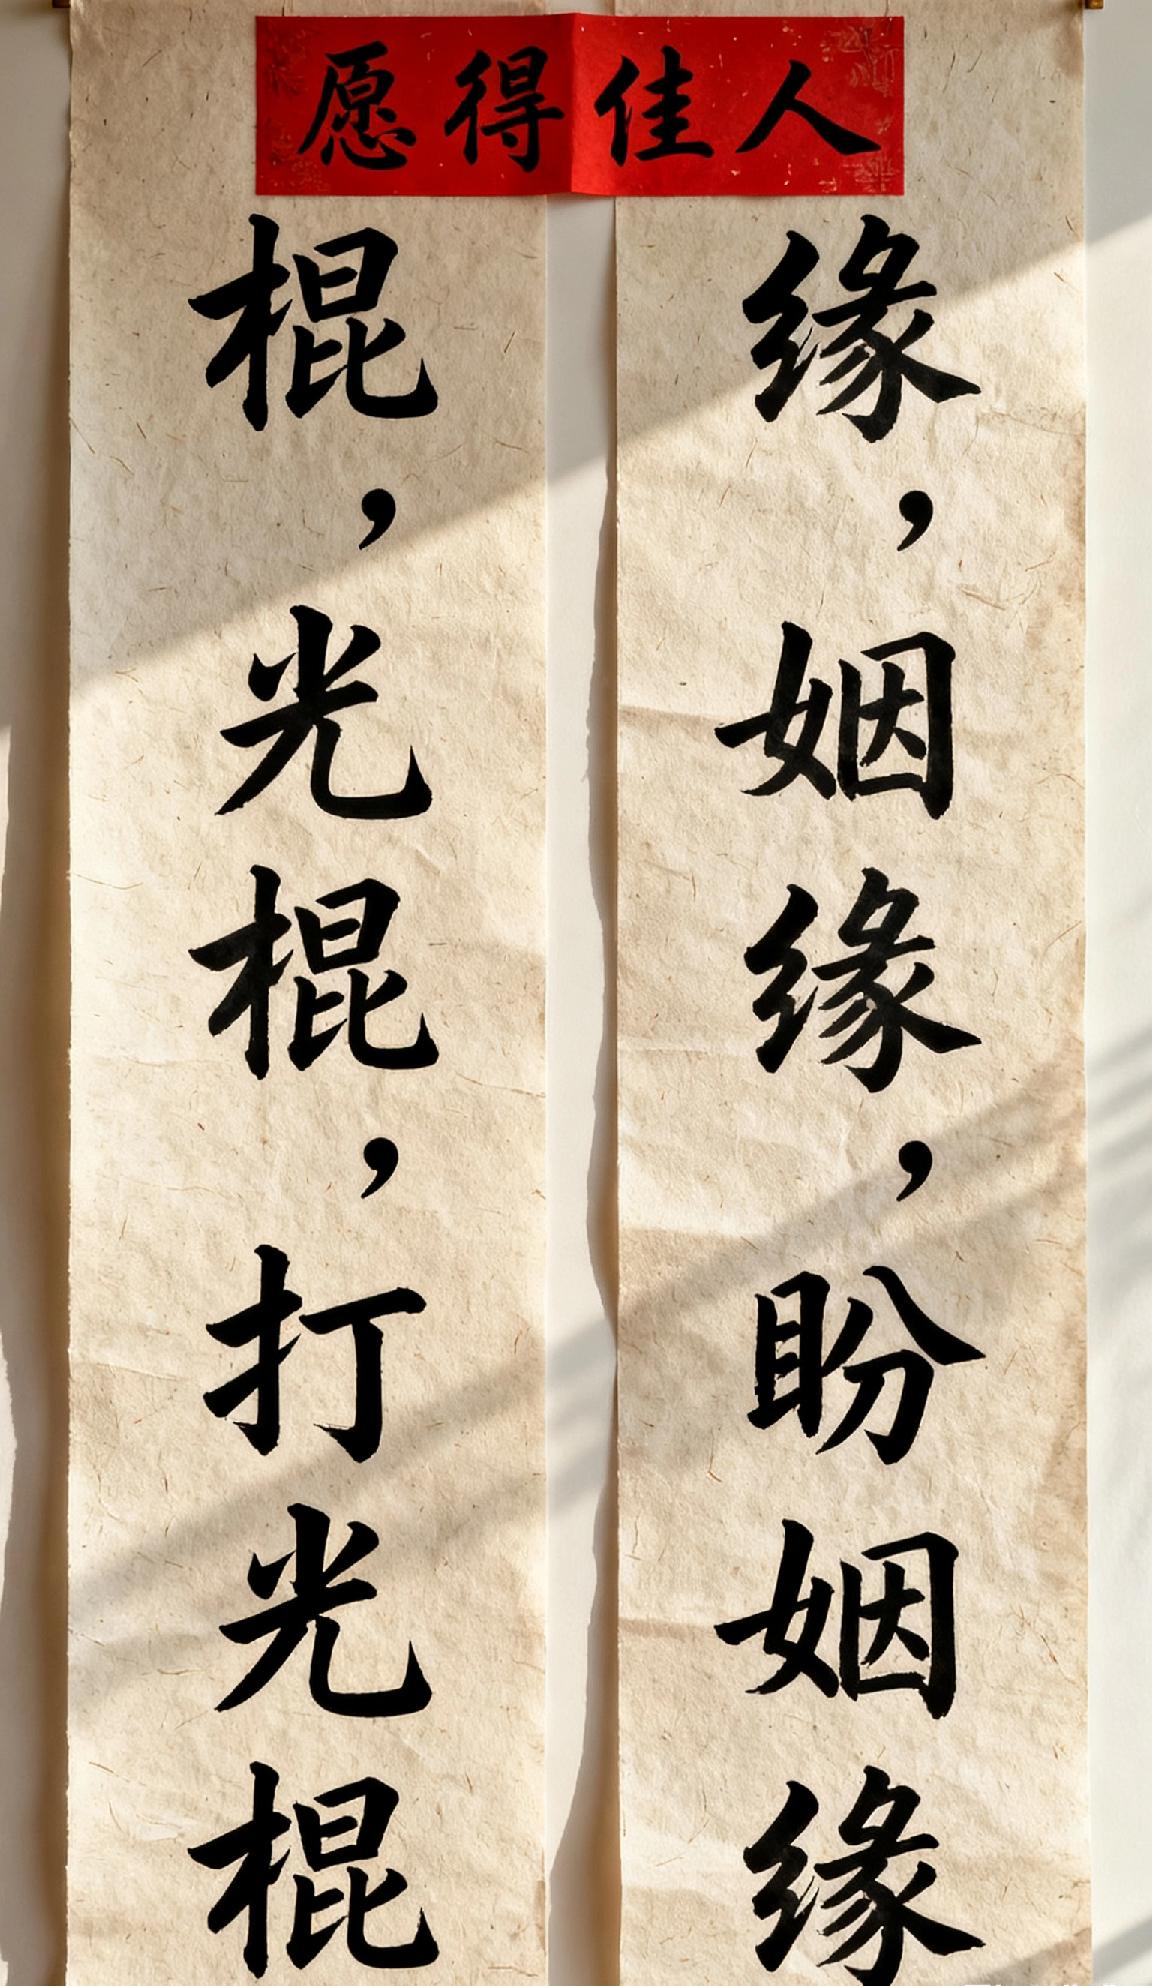 愿得佳人
棍，光棍，打光棍
缘，姻缘，盼姻缘